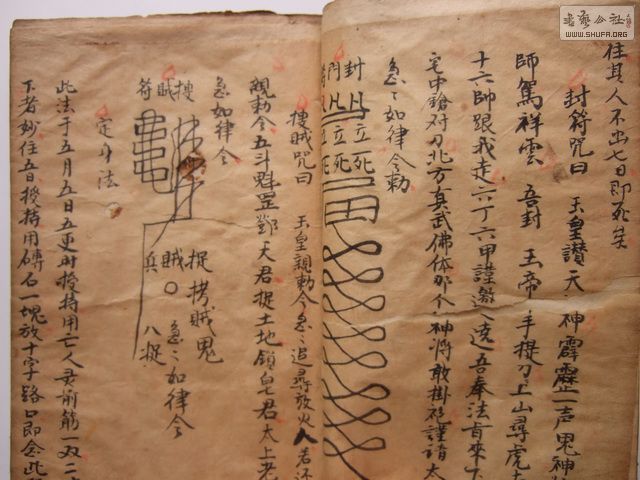 書藝公社
WWW.SHUFA.ORG
住其人不出七日即死矣
封符咒曰 玉皇讃天神霹靂一声鬼神
師篤祥雲 吾封玉帝手提刀上山尋虎
十六帥跟我走六丁六甲謹遵 吾奉法肯來
宅中鎗对刀北方真武佛体那个神将敢掛 謹請太
急〻如律令勅
封門
立死
立死
搜賊咒曰 玉皇親勅令急〻追尋放火人若还
親勅令五斗魁罡鄧天君捉土地鎖 七君太上老
急〻如律令
搜賊符
捉拷賊鬼
賊
兵
急〻如律令
八捉
定身法
此法于五月五日五更时授持用亡人灵前筋一双二
下者妙住吾授持用磚石一塊放十字路口即念此